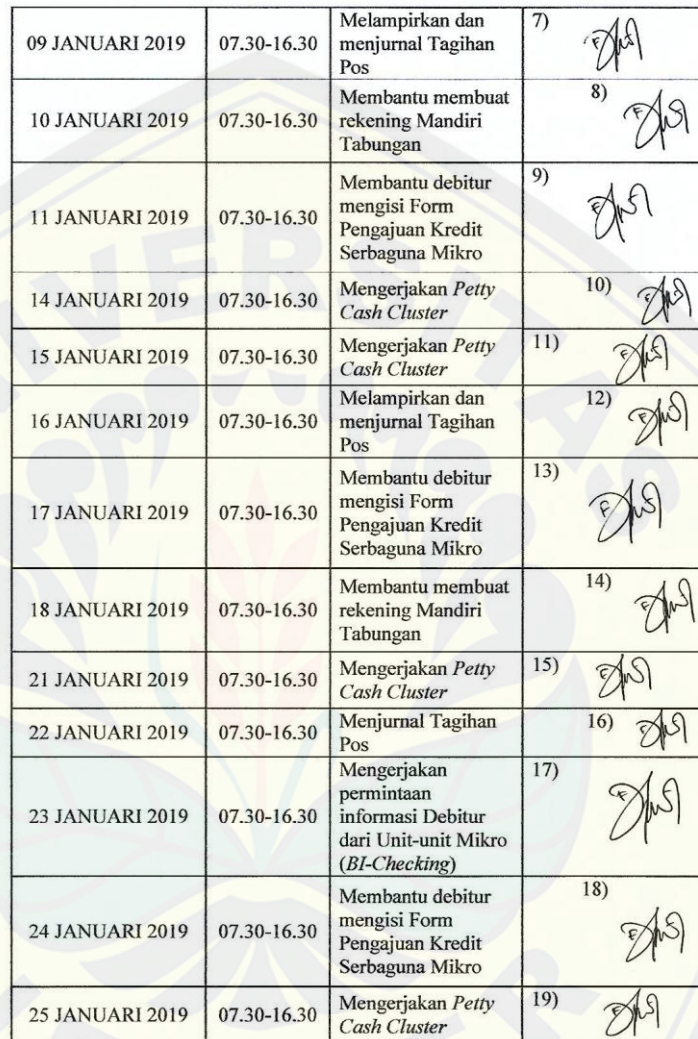 09 JANUARI 2019 07.30-16.30 Melampirkan dan 7)
menjurnal Tagihan
Pos
10 JANUARI 2019 07.30-16.30 Membantu membuat 8)
rekening Mandiri
Tabungan
11 JANUARI 2019 07.30-16.30 Membantu debitur 9)
mengisi Form
Pengajuan Kredit
Serbaguna Mikro
14 JANUARI 2019 07.30-16.30 Mengerjakan Petty 10)
Cash Cluster
15 JANUARI 2019 07.30-16.30 Mengerjakan Petty 11)
Cash Cluster
16 JANUARI 2019 07.30-16.30 Melampirkan dan 12)
menjurnal Tagihan
Pos
17 JANUARI 2019 07.30-16.30 Membantu debitur 13)
mengisi Form
Pengajuan Kredit
Serbaguna Mikro
18 JANUARI 2019 07.30-16.30 Membantu membuat 14)
rekening Mandiri
Tabungan
21 JANUARI 2019 07.30-16.30 Mengerjakan Petty 15)
Cash Cluster
22 JANUARI 2019 07.30-16.30 Menjurnal Tagihan 16)
Pos
23 JANUARI 2019 07.30-16.30 Mengerjakan 17)
permintaan
informasi Debitur
dari Unit-unit Mikro
(BI-Checking)
24 JANUARI 2019 07.30-16.30 Membantu debitur 18)
mengisi Form
Pengajuan Kredit
Serbaguna Mikro
25 JANUARI 2019 07.30-16.30 Mengerjakan Petty 19)
Cash Cluster